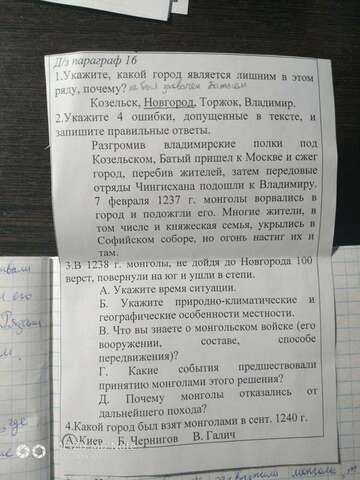 Д/з параграф 16
1.Укажите, какой город является лишним в этом
ряду, почему? не был захвачен Батыем
Козельск, Новгород, Торжок, Владимир.
2.Укажите 4 ошибки, допущенные в тексте, и
запишите правильные ответы.
Разгромив владимирские полки под
Козельском, Батый пришел к Москве и сжег
город, перебив жителей, затем передовые
отряды Чингисхана подошли к Владимиру.
7 февраля 1237 г. монголы ворвались в
город и подожгли его. Многие жители, в
том числе и княжеская семья, укрылись в
Софийском соборе, но огонь настиг их и
там.
3.В 1238 г. монголы, не дойдя до Новгорода 100
верст, повернули на юг и ушли в степи.
А. Укажите время ситуации.
Б. Укажите природно-климатические и
географические особенности местности.
В. Что вы знаете о монгольском войске (его
вооружении, составе, способе
передвижения)?
Г. Какие события предшествовали
принятию монголами этого решения?
Д. Почему монголы отказались от
дальнейшего похода?
4.Какой город был взят монголами в сент. 1240 г.
А Киев Б. Чернигов В. Галич
его
где